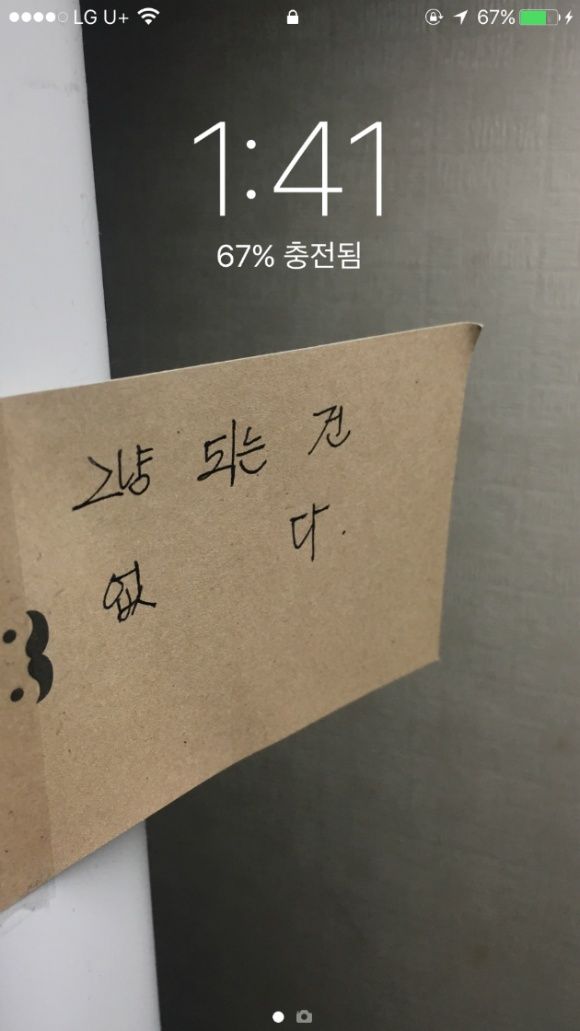 LG U+ 67%
1:41
67% 충전됨
그냥 되는 건
없 다.